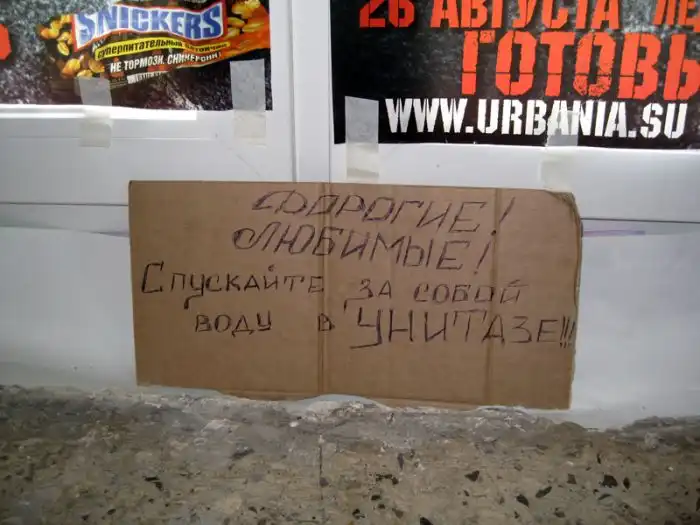 SNICKERS
суперпитательный батончик
НЕ ТОРМОЗИ. СНИКЕРСНИ!
26 АВГУСТА
ГОТОВЬ
WWW.URBANIA.SU
ДОРОГИЕ!
ЛЮБИМЫЕ!
СПУСКАЙТЕ ЗА СОБОЙ
ВОДУ В УНИТАЗЕ!!!